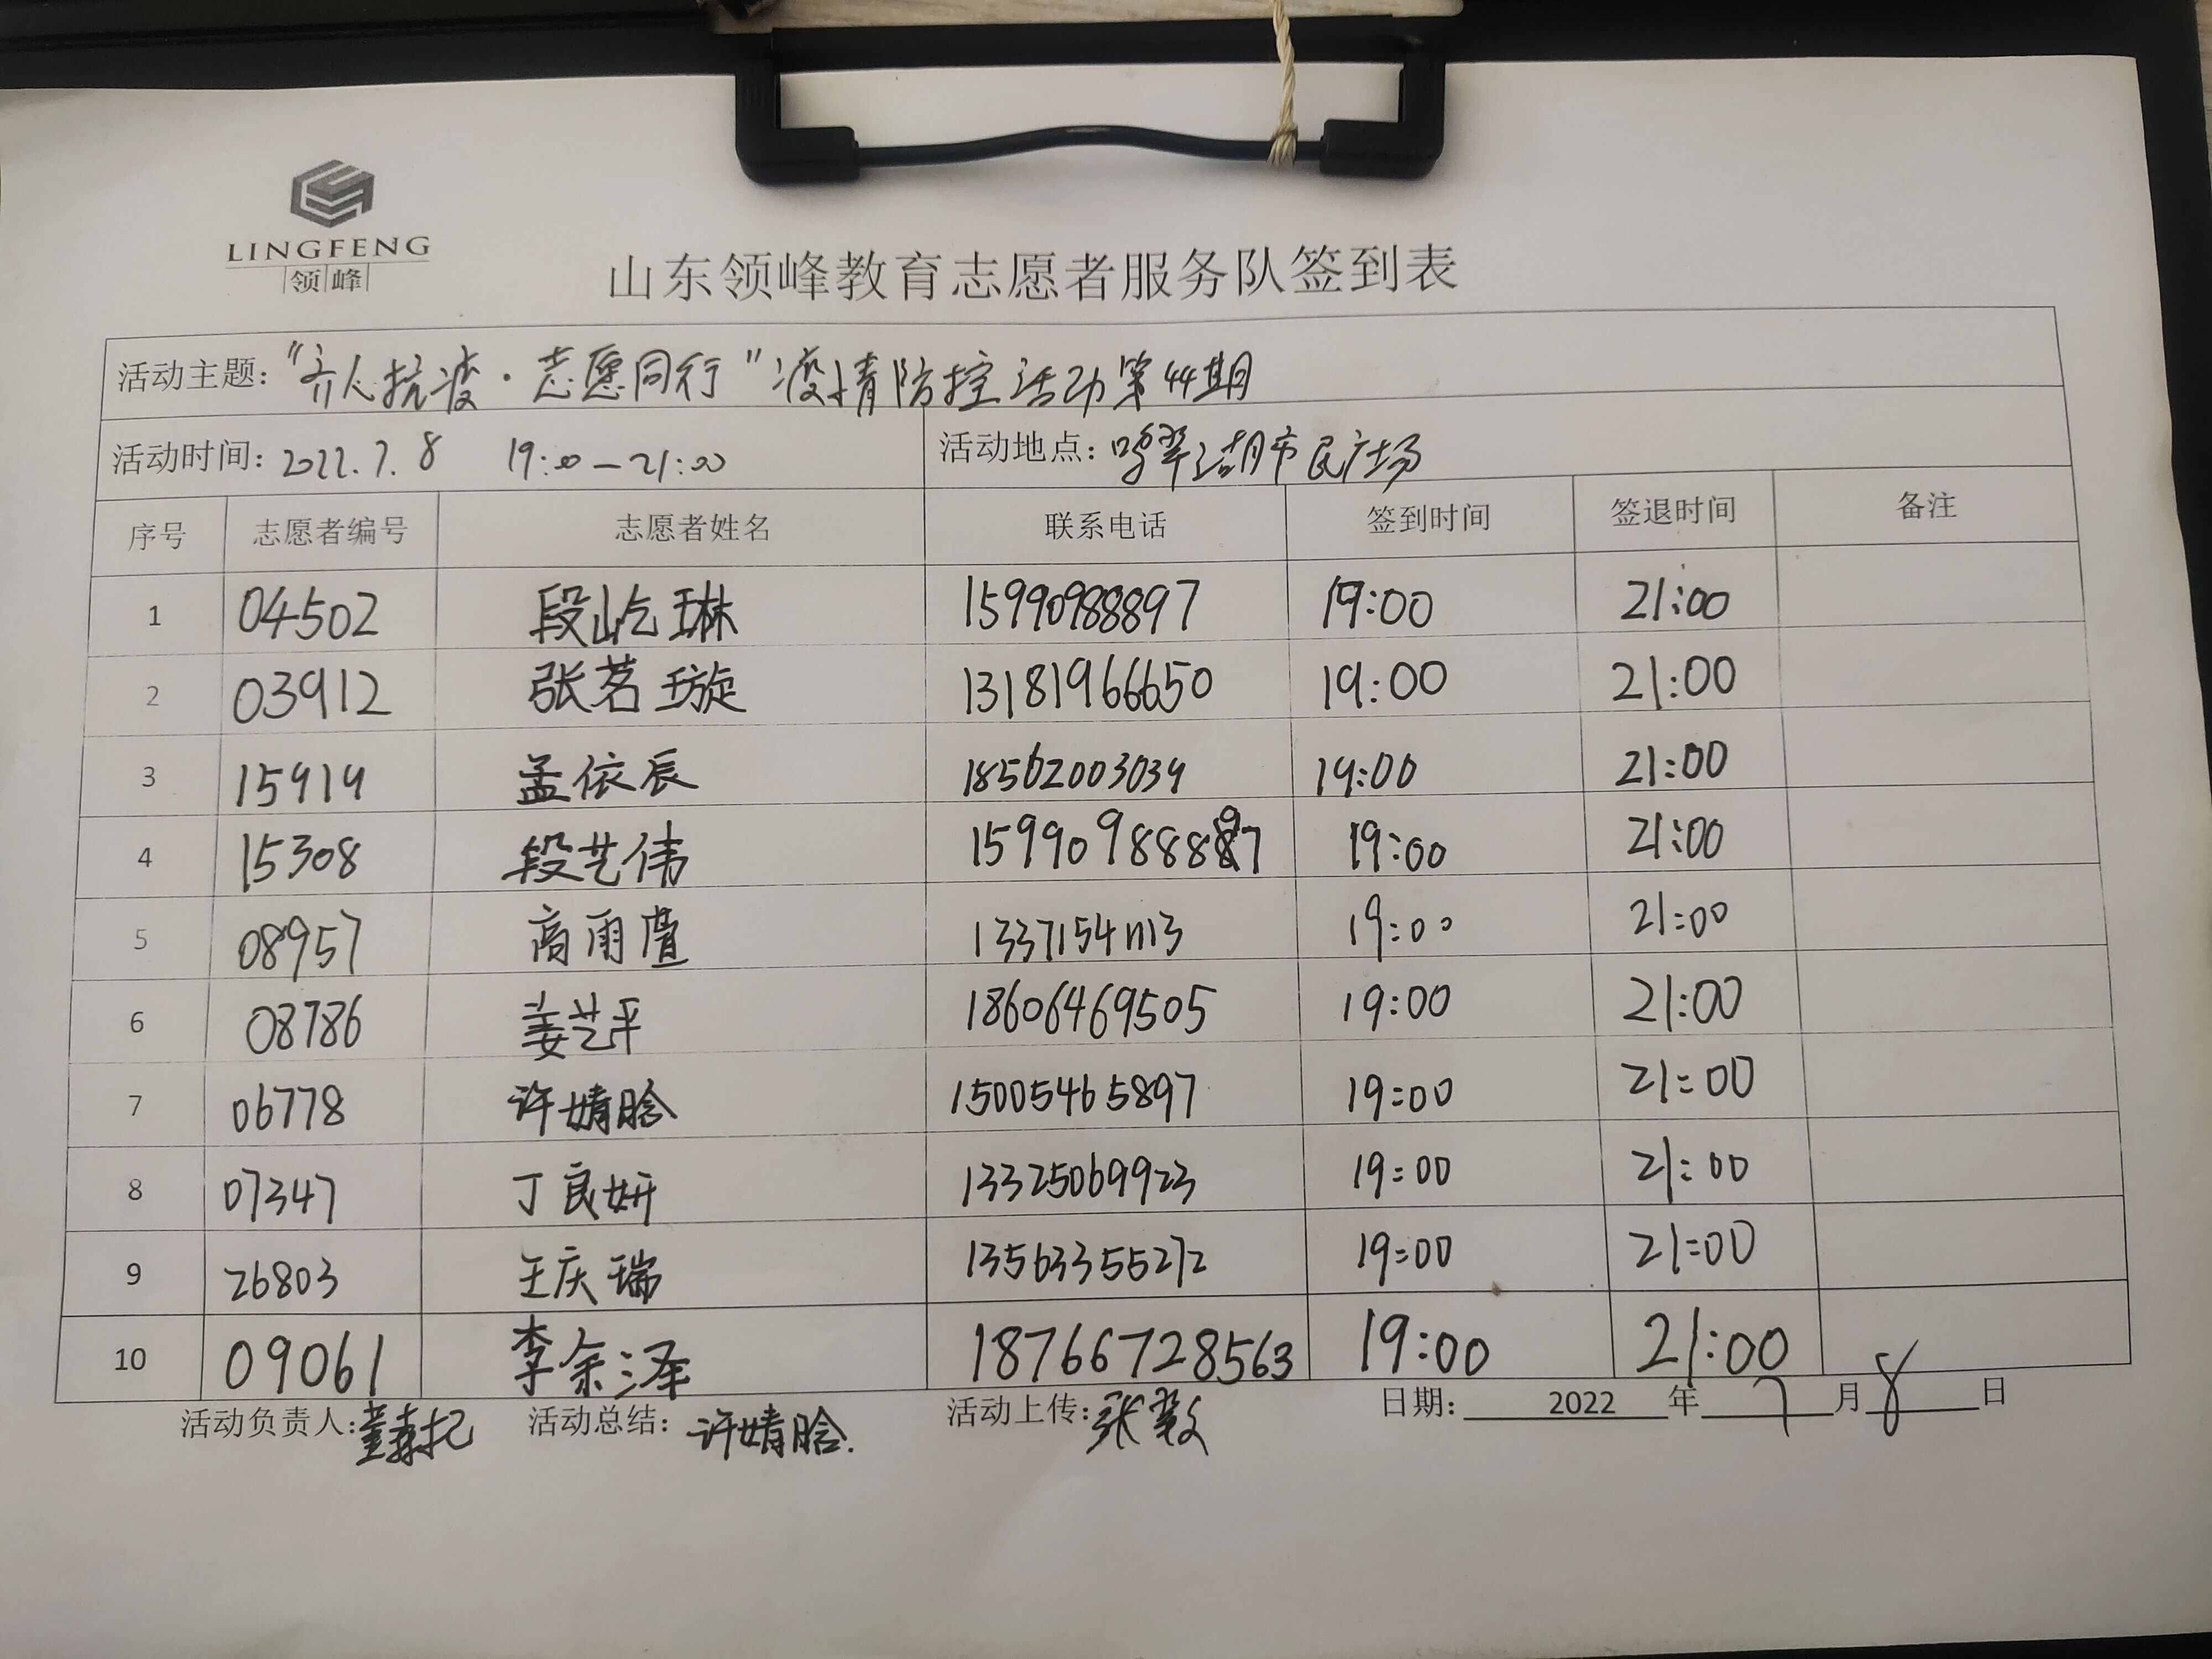 LINGFENG
领峰
山东领峰教育志愿者服务队签到表
活动主题：“齐人抗疫·志愿同行”疫情防控活动第44期
活动时间：2022.7.8 19:00—21:00 活动地点：鸣翠湖市民广场
序号 志愿者编号 志愿者姓名 联系电话 签到时间 签退时间 备注
1 04502 段屹琳 15990988897 19:00 21:00
2 03912 张茗璇 13181966650 19:00 21:00
3 15919 孟依辰 18562003039 19:00 21:00
4 15308 段艺伟 15990988897 19:00 21:00
5 08957 高雨 13371541113 19:00 21:00
6 08786 姜艺平 18606469505 19:00 21:00
7 06778 许婧晗 15005465897 19:00 21:00
8 07347 丁良妍 13325069923 19:00 21:00
9 26803 王庆瑞 13563355272 19:00 21:00
10 09061 李余泽 18766728563 19:00 21:00
活动负责人： 活动总结：许婧晗. 活动上传：张 日期：2022年7月8日